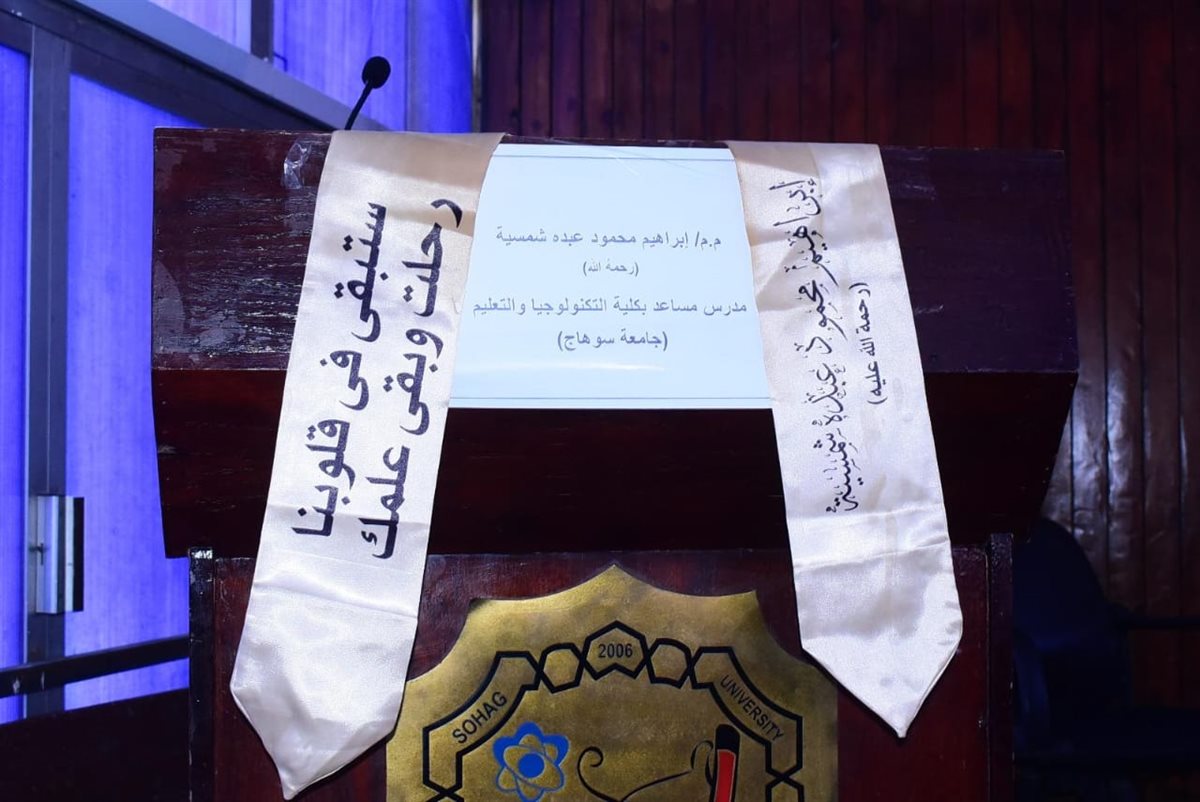 رحلت وبقى علمك
ستبقى فى قلوبنا
م.م/ إبراهيم محمود عبده شمسية
(رحمة الله)
مدرس مساعد بكلية التكنولوجيا والتعليم
(جامعة سوهاج)
إبراهيم محمود عبده شمسية
(رحمة الله عليه)
2006
SOHAG UNIVERSITY